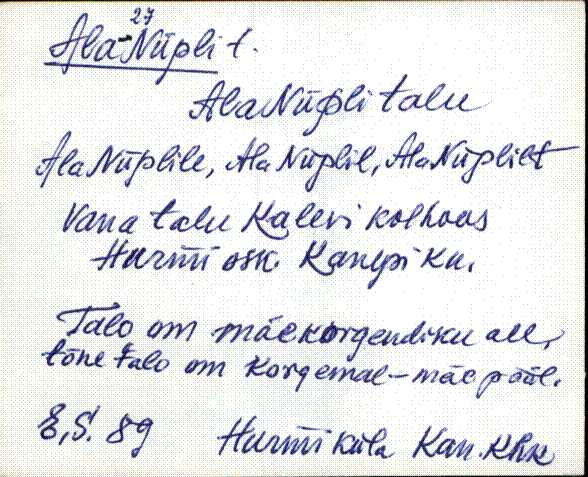 27
Ala-Nüpli t.
AlaNüpli talu
AlaNüplile, AlaNüplil, AlaNüplilt
Vana talu Kalevi kolhoos
Hurmi osk. Kanepi kn.
Talo om mäekorgendiku all,
tõne talo om korgemal - mäe pääl.
E,S. 89 Hurmi küla Kan. khk